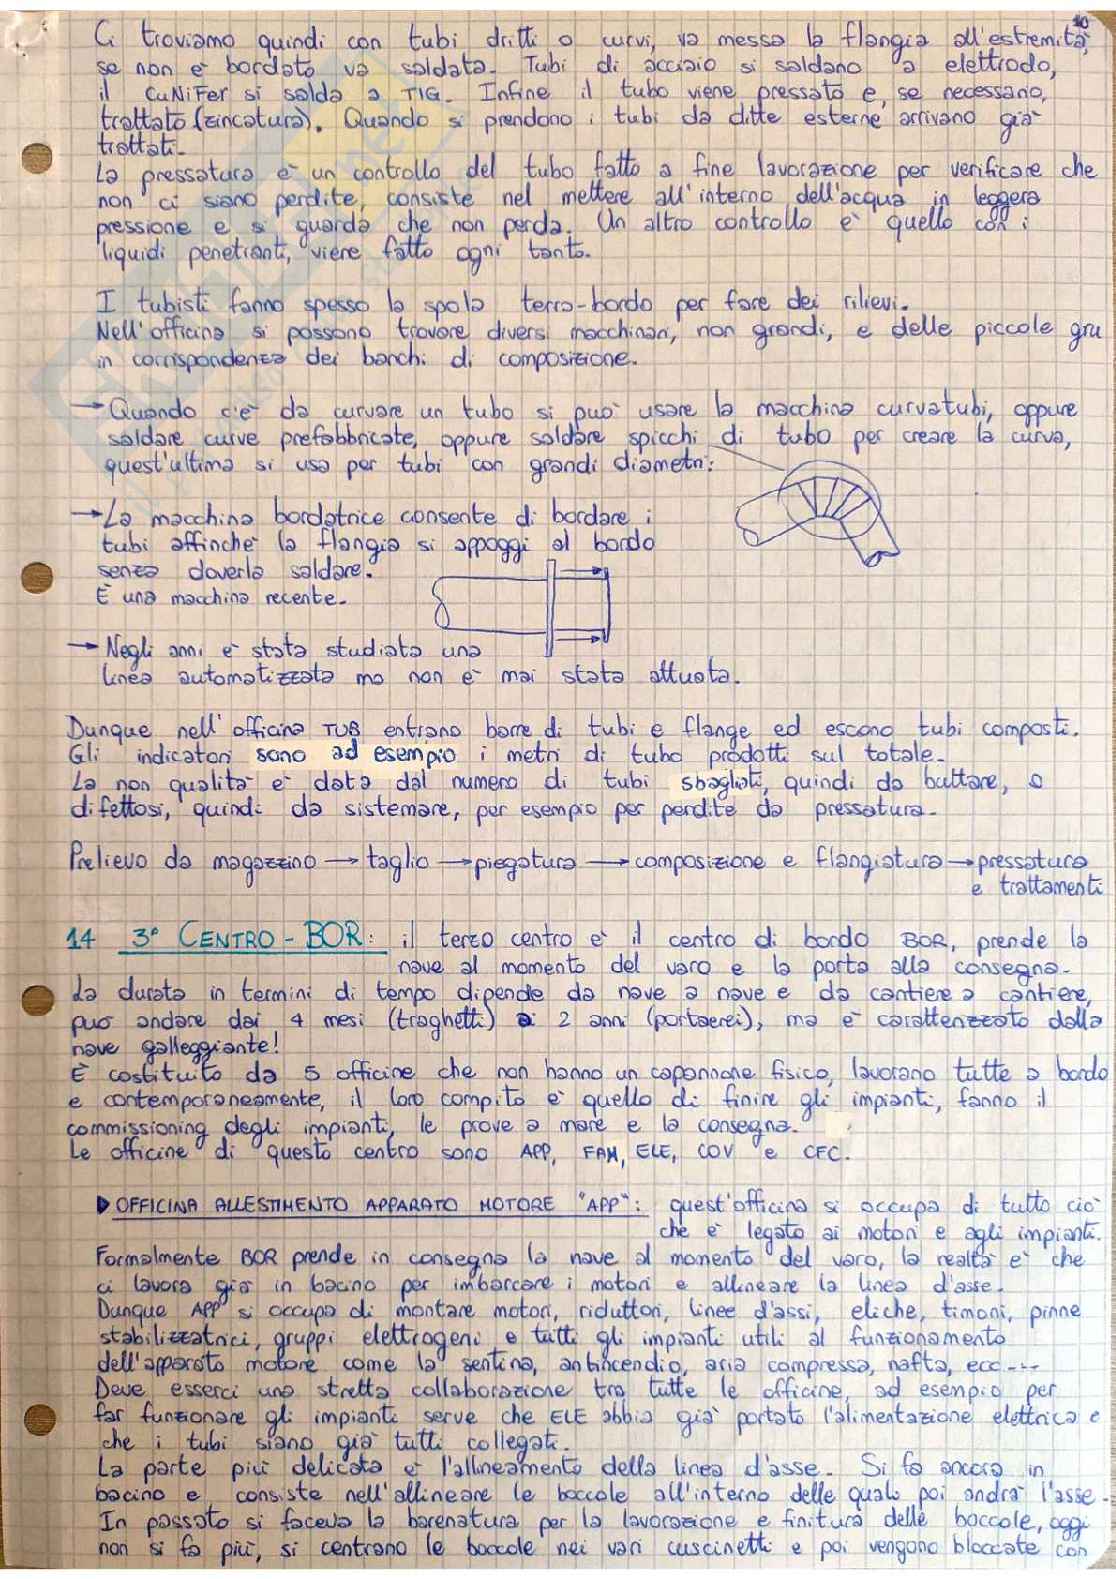 10
Ci troviamo quindi con tubi dritti o curvi, va messa la flangia all'estremità,
se non è bordato va saldata. Tubi di acciaio si saldano a elettrodo,
il CuNiFer si salda a TIG. Infine il tubo viene pressato e, se necessario,
trattato (zincatura). Quando si prendono i tubi da ditte esterne arrivano già
trattati.
La pressatura è un controllo del tubo fatto a fine lavorazione per verificare che
non ci siano perdite, consiste nel mettere all'interno dell'acqua in leggera
pressione e si guarda che non perda. Un altro controllo è quello con i
liquidi penetranti, viene fatto ogni tanto.
I tubisti fanno spesso la spola terra-bordo per fare dei rilievi.
Nell'officina si possono trovare diversi macchinari, non grandi, e delle piccole gru
in corrispondenza dei banchi di composizione.
→ Quando c'è da curvare un tubo si può usare la macchina curvatubi, oppure
saldare curve prefabbricate, oppure saldare spicchi di tubo per creare la curva,
quest'ultima si usa per tubi con grandi diametri:
→ La macchina bordatrice consente di bordare i
tubi affinchè la flangia si appoggi al bordo
senza doverla saldare.
È una macchina recente.
→ Negli anni è stata studiata una
linea automatizzata ma non è mai stata attuata.
Dunque nell'officina TUB entrano barre di tubi e flange ed escono tubi composti.
Gli indicatori sono ad esempio i metri di tubo prodotti sul totale.
La non qualità è data dal numero di tubi sbagliati, quindi da buttare, o
difettosi, quindi da sistemare, per esempio per perdite da pressatura.
Prelievo da magazzino → taglio → piegatura → composizione e flangiatura → pressatura
e trattamenti
14 3° CENTRO - BOR: il terzo centro è il centro di bordo BOR, prende la
nave al momento del varo e la porta alla consegna.
La durata in termini di tempo dipende da nave a nave e da cantiere a cantiere,
può andare dai 4 mesi (traghetti) ai 2 anni (portaerei), ma è caratterizzato dalla
nave galleggiante!
È costituito da 5 officine che non hanno un capannone fisico, lavorano tutte a bordo
e contemporaneamente, il loro compito è quello di finire gli impianti, fanno il
commissioning degli impianti, le prove a mare e la consegna.
Le officine di questo centro sono APP, FAM, ELE, COV e CFC.
▶ OFFICINA ALLESTIMENTO APPARATO MOTORE "APP": quest'officina si occupa di tutto ciò
che è legato ai motori e agli impianti.
Formalmente BOR prende in consegna la nave al momento del varo, la realtà è che
ci lavora già in bacino per imbarcare i motori e allineare la linea d'asse.
Dunque APP si occupa di montare motori, riduttori, linee d'assi, eliche, timoni, pinne
stabilizzatrici, gruppi elettrogeni e tutti gli impianti utili al funzionamento
dell'apparato motore come la sentina, antincendio, aria compressa, nafta, ecc....
Deve esserci una stretta collaborazione tra tutte le officine, ad esempio per
far funzionare gli impianti serve che ELE abbia già portato l'alimentazione elettrica e
che i tubi siano già tutti collegati.
La parte più delicata è l'allineamento della linea d'asse. Si fa ancora in
bacino e consiste nell'allineare le boccole all'interno delle quali poi andrà l'asse.
In passato si faceva la barenatura per la lavorazione e finitura delle boccole, oggi
non si fa più, si centrano le boccole nei vari cuscinetti e poi vengono bloccate con